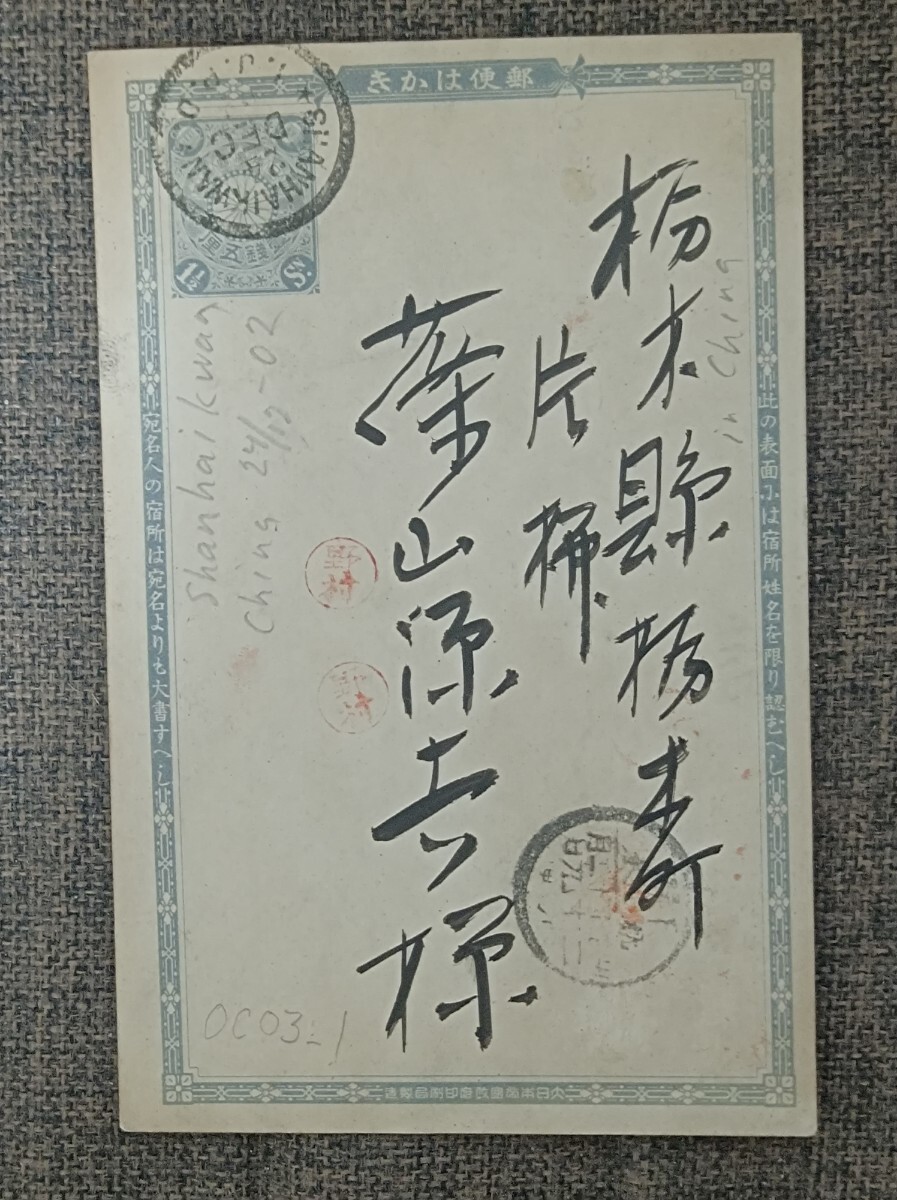 郵便はかき
SHANHAIKWAN
I.J.P.O
壹錢五厘
1½ Sⁿ.
此の表面には宿所姓名を限り認むへし
栃木縣栃木町
片栁
篠山源吉様
野村
in China
Shanhaikwan
China 24/12-02
宛名人の宿所は宛名よりも大書すへし
OC03:1
大日本帝國政府印刷局製造